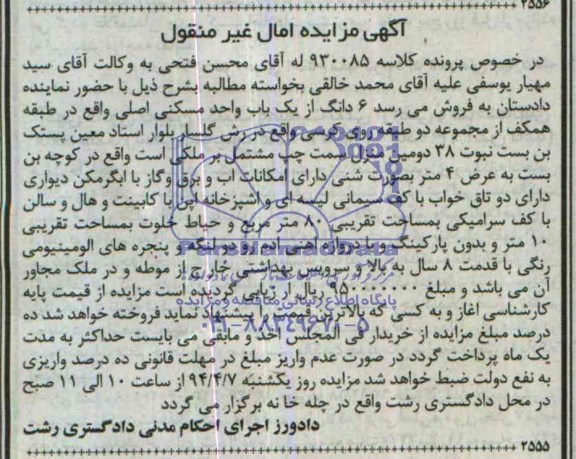 ۲۵۵۶
آگهی مزایده اموال غیر منقول
در خصوص پرونده کلاسه ۹۳۰۰۸۵ له آقای محسن فتحی به وکالت آقای سید
مهیار یوسفی علیه آقای محمد خالقی بخواسته مطالبه بشرح ذیل با حضور نماینده
دادستان به فروش می رسد ۶ دانگ از یک باب واحد مسکنی اصلی واقع در طبقه
همکف از مجموعه دو طبقه روی کرسی واقع در رش گلسار بلوار استاد معین پستک
بن بست نبوت ۳۸ دومین منزل سمت چپ مشتمل بر ملکی است واقع در کوچه بن
بست به عرض ۴ متر بصورت شنی دارای امکانات اب و برق وگاز با ابگرمکن دیواری
دارای دو تاق خواب با کف سیمانی لیسه ای و اشپزخانه اپن با کابینت و هال و سالن
با کف سرامیکی بمساحت تقریبی ۸۰ متر مربع و حیاط خلوت بمساحت تقریبی
۱۰ متر و بدون پارکینگ و با دروازه اهنی ادم رو دو لنگه و پنجره های الومینیومی
رنگی با قدمت ۸ سال به بالا و سرویس بهداشتی خارج از موطه و در ملک مجاور
آن می باشد و مبلغ ۹۵۰۰۰۰۰۰۰ ریال ار زیابی گردیده است مزایده از قیمت پایه
کارشناسی اغاز و به کسی که بالاترین قیمت را پیشنهاد نماید فروخته خواهد شد ده
درصد مبلغ مزایده از خریدار فی المجلس اخذ و مابقی می بایست حداکثر به مدت
یک ماه پرداخت گردد در صورت عدم واریز مبلغ در مهلت قانونی ده درصد واریزی
به نفع دولت ضبط خواهد شد مزایده روز یکشنبه ۹۴/۴/۷ از ساعت ۱۰ الی ۱۱ صبح
در محل دادگستری رشت واقع در چله خا نه برگزار می گردد
دادورز اجرای احکام مدنی دادگستری رشت
۲۵۵۵
پایگاه اطلاع رسانی مناقصه و مزایده
۰۲۱-۸۸۳۴۹۶۷۰-۵